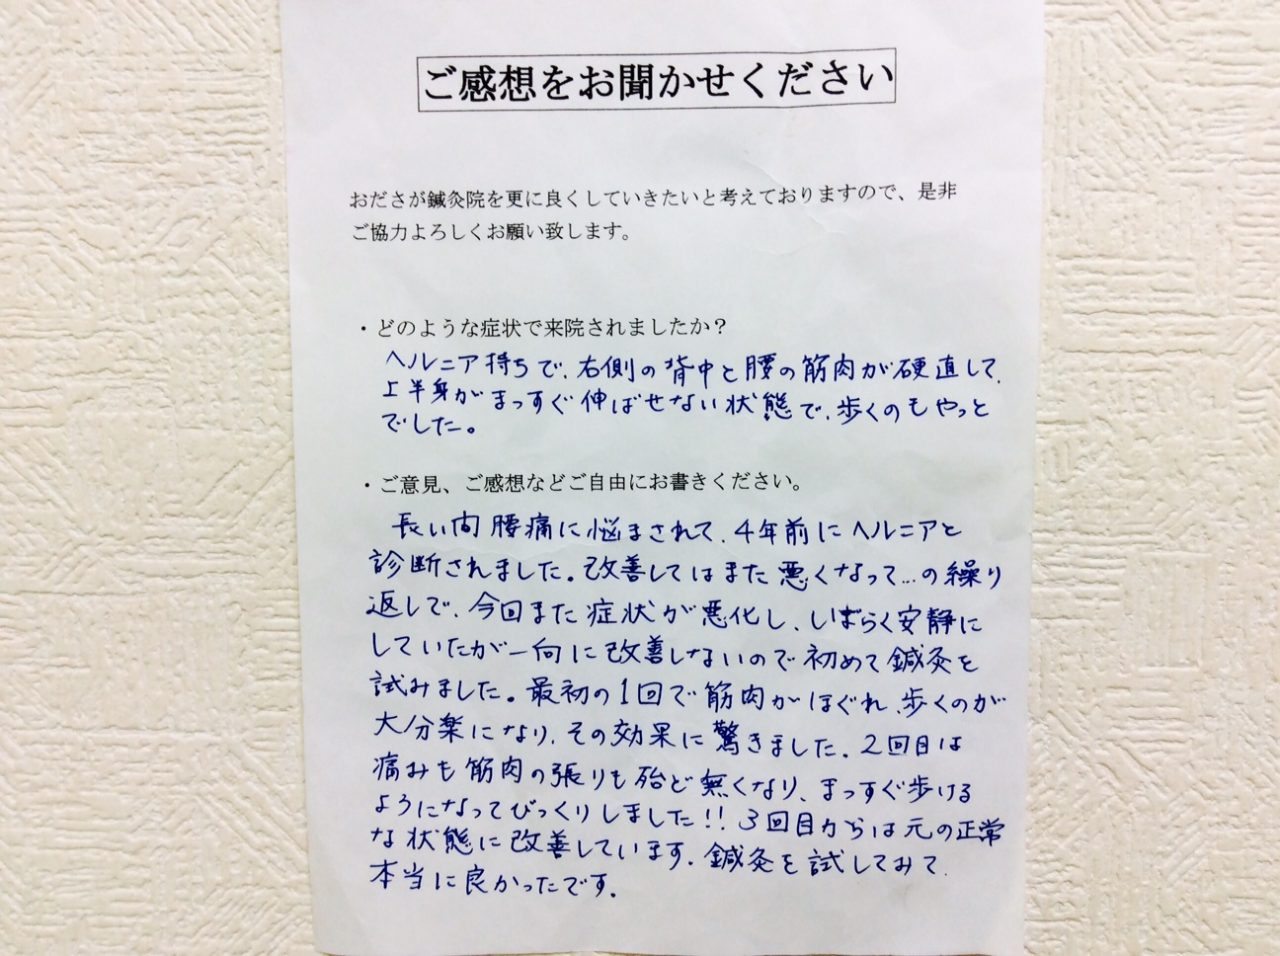 ご感想をお聞かせください
おださが鍼灸院を更に良くしていきたいと考えておりますので、是非
ご協力よろしくお願い致します。
・どのような症状で来院されましたか？
ヘルニア持ちで、右側の背中と腰の筋肉が硬直して、
上半身がまっすぐ伸ばせない状態で、歩くのもやっと
でした。
・ご意見、ご感想などご自由にお書きください。
長い間腰痛に悩まされて、4年前にヘルニアと
診断されました。改善してはまた悪くなって…の繰り
返しで、今回また症状が悪化し、しばらく安静に
していたが一向に改善しないので初めて鍼灸を
試みました。最初の1回で筋肉がほぐれ、歩くのが
大分楽になり、その効果に驚きました。2回目は
痛みも筋肉の張りも殆ど無くなり、まっすぐ歩ける
ようになってびっくりしました!! 3回目からは元の正常
な状態に改善しています。鍼灸を試してみて、
本当に良かったです。